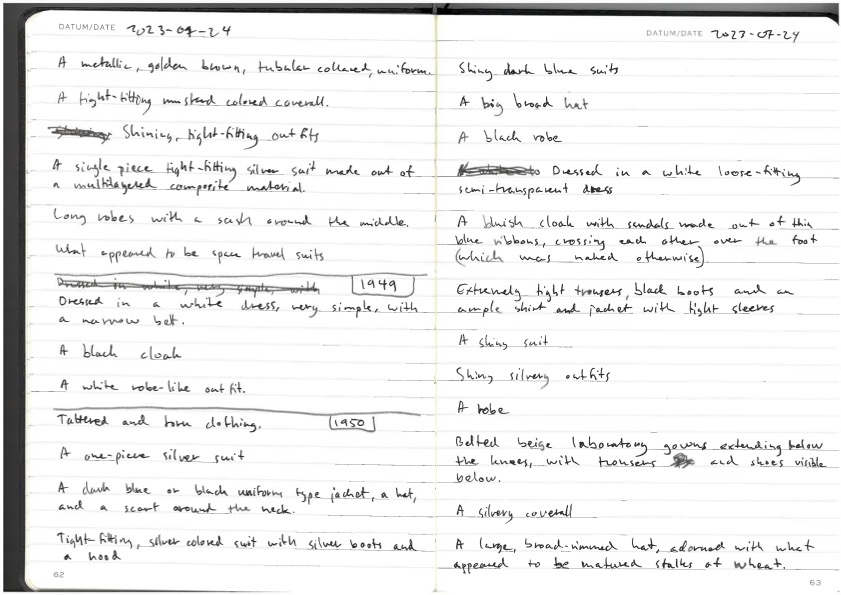 DATUM/DATE 2023-07-24
A metallic, golden brown, tubular collared, uniform.
A tight-fitting mustard colored coverall.
Shining, tight-fitting outfits
A single piece tight-fitting silver suit made out of
a multilayered composite material.
Long robes with a sash around the middle.
What appeared to be space travel suits
Dressed in white, very simple, with
1949
Dressed in a white dress, very simple, with
a narrow belt.
A black cloak
A white robe-like outfit.
Tattered and torn clothing.
1950
A one-piece silver suit
A dark blue or black uniform type jacket, a hat,
and a scarf around the neck.
Tight-fitting, silver colored suit with silver boots and
a hood
62
DATUM/DATE 2023-07-24
Shiny dark blue suits
A big broad hat
A black robe
Dressed in a white loose-fitting
semi-transparent dress
A bluish cloak with sandals made out of thin
blue ribbons, crossing each other over the foot
(which was naked otherwise)
Extremely tight trousers, black boots and an
ample shirt and jacket with tight sleeves
A shiny suit
Shiny silvery outfits
A robe
Belted beige laboratory gowns extending below
the knees, with trousers and shoes visible
below.
A silvery coverall
A large, broad-rimmed hat, adorned with what
appeared to be matured stalks of wheat.
63